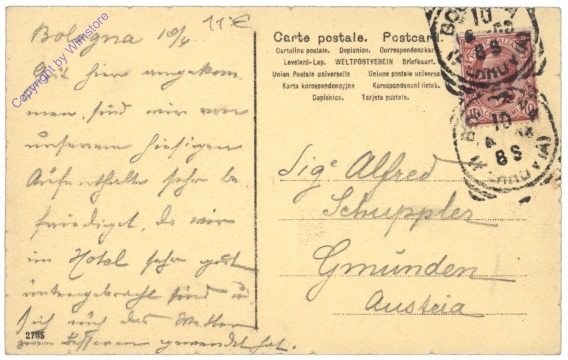 Bologna 10/4
11 €
Gut hier angekom
men, sind wir von
unserem hiesigen
Aufenthalte sehr be
friedigt, da wir
im Hotel sehr gut
untergebracht sind u
sich auch das Wetter
zum Besseren gewendet hat.
2795
Copyright by Wimstore
Carte postale. Postcard
Cartolina postale. Dopisnice. Correspondenzkar
Levelező-Lap. WELTPOSTVEREIN Briefkaart.
Union Postale universelle Unione postale universa
Karta korespondencyjna Korespondentní lístek.
Dopisnica. Tarjeta postale.
10
8 S
10
8 S
Sige Alfred
Schuppler
Gmunden
Austria